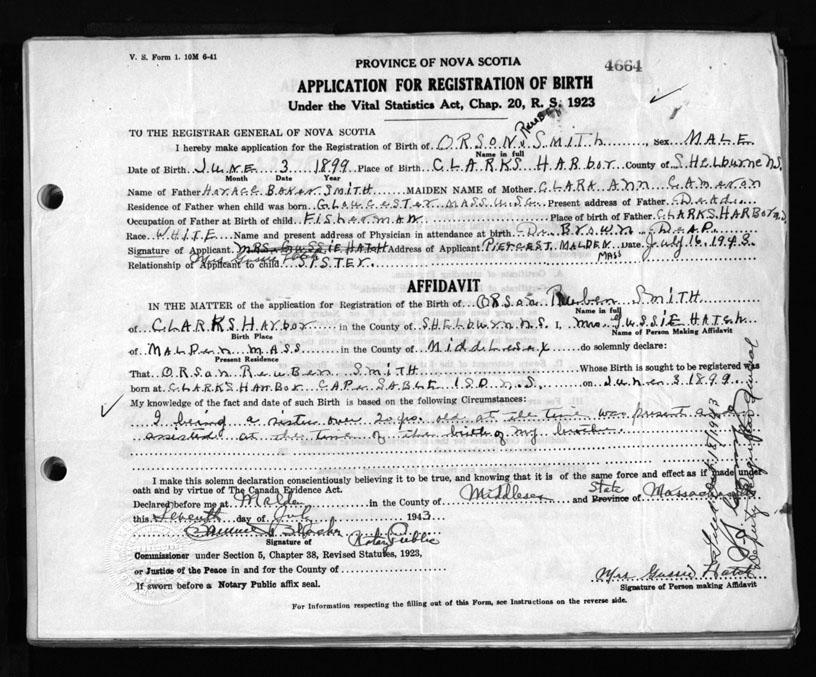 V. S. Form 1. 10M 6-41
PROVINCE OF NOVA SCOTIA
4664
APPLICATION FOR REGISTRATION OF BIRTH
Under the Vital Statistics Act, Chap. 20, R. S. 1923
TO THE REGISTRAR GENERAL OF NOVA SCOTIA
Reuben
I hereby make application for the Registration of Birth of ORSON SMITH, Sex MALE
Name in full
Date of Birth JUNE 3 1899 Place of Birth CLARKS HARbor County of SHELburne N.S.
Month Date Year
Name of Father HORACE BAKER SMITH MAIDEN NAME of Mother CLARK ANN CAMERON
Residence of Father when child was born GLOUCESTER MASS U.S.A. Present address of Father DEAD
Occupation of Father at Birth of child FISHERMAN Place of Birth of Father CLARKS HARBOR N.S.
Race WHITE Name and present address of Physician in attendance at birth Dr. BROWN DEAD.
Signature of Applicant MRS GUSSIE HATCH Address of Applicant PIERCE ST. MALDEN Date July 16. 1943.
Mrs Gussie Hatch MASS
Relationship of Applicant to child SISTER.
AFFIDAVIT
IN THE MATTER of the application for Registration of the Birth of ORSON Reuben SMITH
Name in full
of CLARKS Harbor in the County of SHELburn N.S. I, Mrs GUSSIE HATCH
Birth Place Name of Person Making Affidavit
of MALDEN MASS in the County of MiddLesex do solemnly declare:
Present Residence
That ORSON REUBEN SMITH Whose Birth is sought to be registered was
born at CLARKS HARBOR CAPE SABLE ISD N.S. on June 3 1899.
My knowledge of the fact and date of such Birth is based on the following Circumstances:
I being a sister over 20 yrs. old at the time was present and
assisted at the time of the birth of my brother.
I make this solemn declaration conscientiously believing it to be true, and knowing that it is of the same force and effect as if made under
oath and by virtue of The Canada Evidence Act.
Declared before me at Malden in the County of Middlesex and State Province of Massachusetts
this Seventh day of July 1943
Samuel
Signature of Notary Public
Commissioner under Section 5, Chapter 38, Revised Statutes, 1923,
or Justice of the Peace in and for the County of
If sworn before a Notary Public affix seal.
Mrs Gussie Hatch
Signature of Person making Affidavit
For Information respecting the filling out of this Form, see Instructions on the reverse side.
Deputy Registrar General